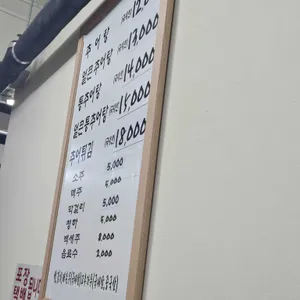 추어탕 (국산) 12,0
얼큰추어탕 (국산) 13,000
통추어탕 (국산) 14,000
얼큰통추어탕 (국산) 15,000
추어튀김 (국산) 18,000
소주 5,000
맥주 5,000
막걸리 5,000
청하 5,000
백세주 8,000
음료수 2,000
포장
택배